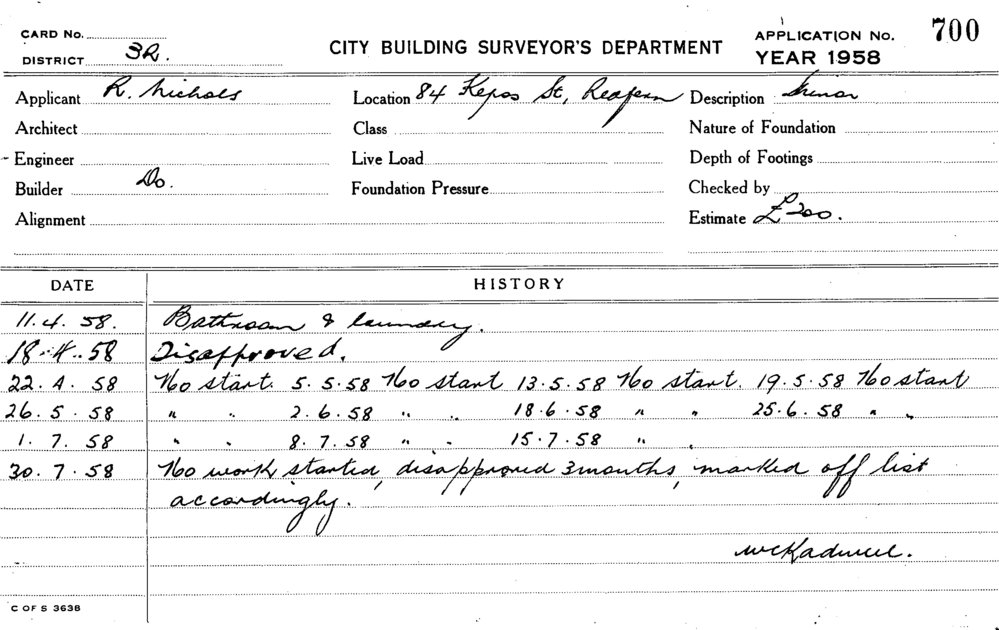 CARD No.
DISTRICT 3R.
CITY BUILDING SURVEYOR'S DEPARTMENT
APPLICATION No. 700
YEAR 1958
Applicant R. Nichols Location 84 Kepos St, Redfern Description Minor
Architect Class Nature of Foundation
Engineer Live Load Depth of Footings
Builder Do. Foundation Pressure Checked by
Alignment Estimate £200.
DATE HISTORY
11.4.58. Bathroom & laundry.
18.4.58 Disapproved.
22.4.58 No start. 5.5.58 No start 13.5.58 No start. 19.5.58 No start
26.5.58 " " 2.6.58 " " 18.6.58 " " 25.6.58 " "
1.7.58 " " 8.7.58 " " 15.7.58 " "
30.7.58 No work started, disapproved 3 months, marked off list
accordingly.
C OF S 3638